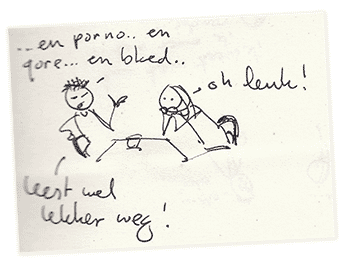 ..en porno.. en
gore... en bloed..
oh leuk!
leest wel
lekker weg!